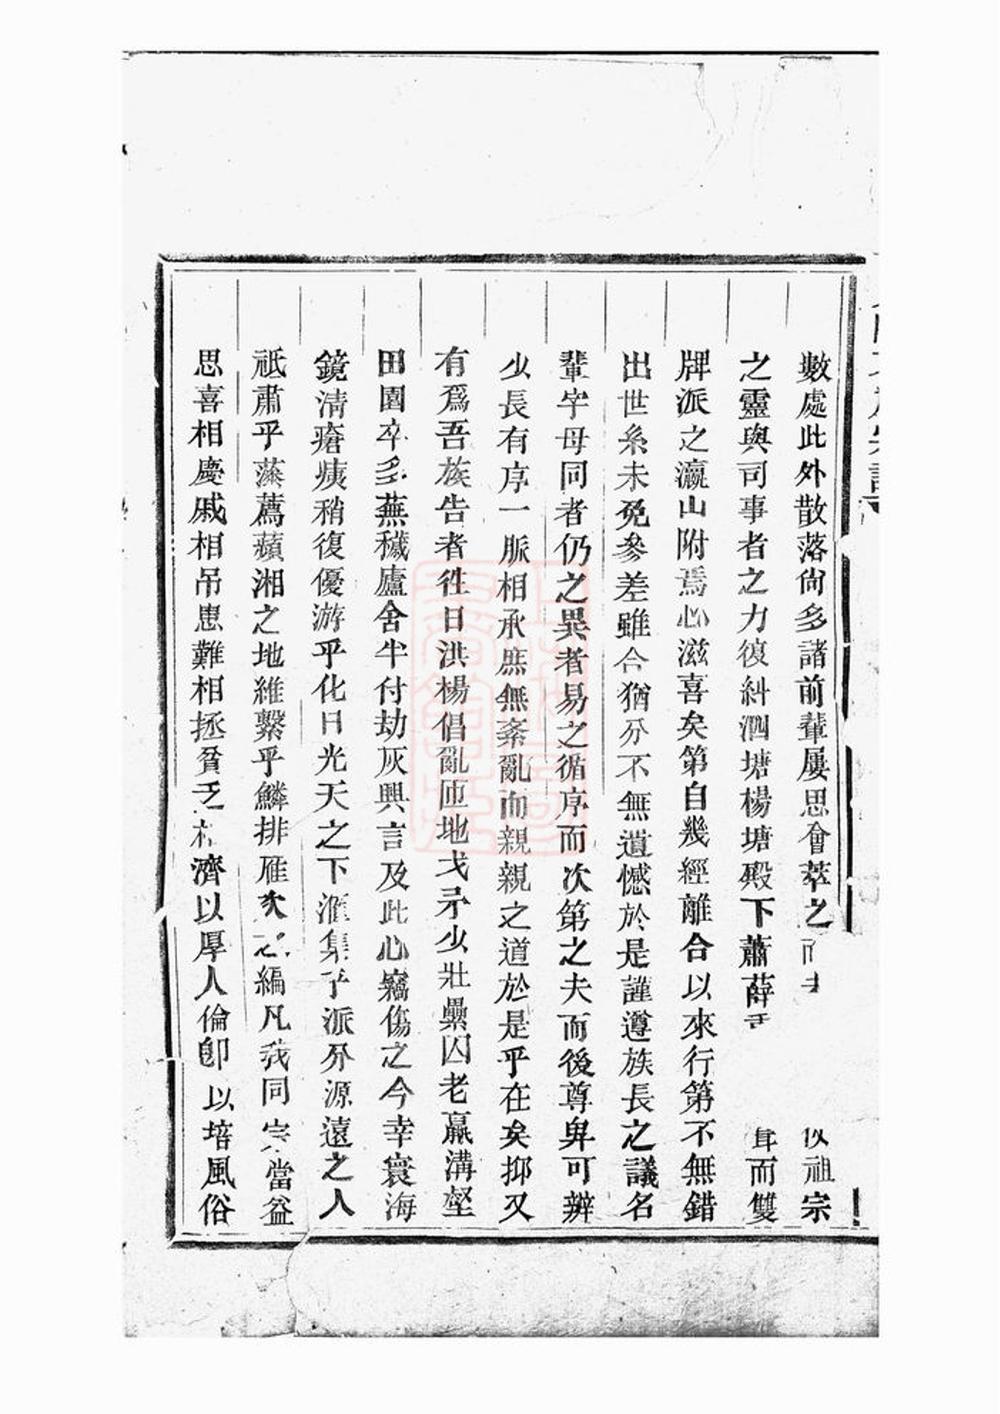 數處此外散落尙多諸前輩屢思會萃之而祖宗
之靈與司事者之力復糾泗塘楊塘殿下蕭薛而雙
牌派之瀛山附焉心滋喜矣第自幾經離合以來行第不無錯
出世系未免參差雖合猶分不無遺憾於是謹遵族長之議名
輩字母同者仍之異者易之循序而次第之夫而後尊卑可辨
少長有序一脈相承庶無紊亂而親親之道於是乎在矣抑又
有爲吾族告者徃日洪楊倡亂匝地戈矛少壯纍囚老羸溝壑
田園卒多蕪穢廬舍半付劫灰興言及此心竊傷之今幸寰海
鏡清瘡痍稍復優游乎化日光天之下滙集乎派分源遠之人
祇肅乎藻薦蘋湘之地維繫乎鱗排雁次之編凡我同宗當益
思喜相慶戚相吊患難相拯貧乏相濟以厚人倫卽以培風俗